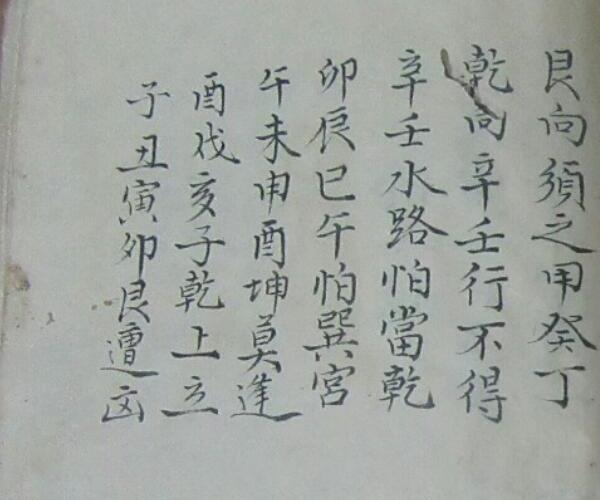 艮向須之甲癸丁
乾向辛壬行不得
辛壬水路怕當乾
卯辰巳午怕巽宮
午未申酉坤莫逢
酉戌亥子乾上立
子丑寅卯艮遭凶